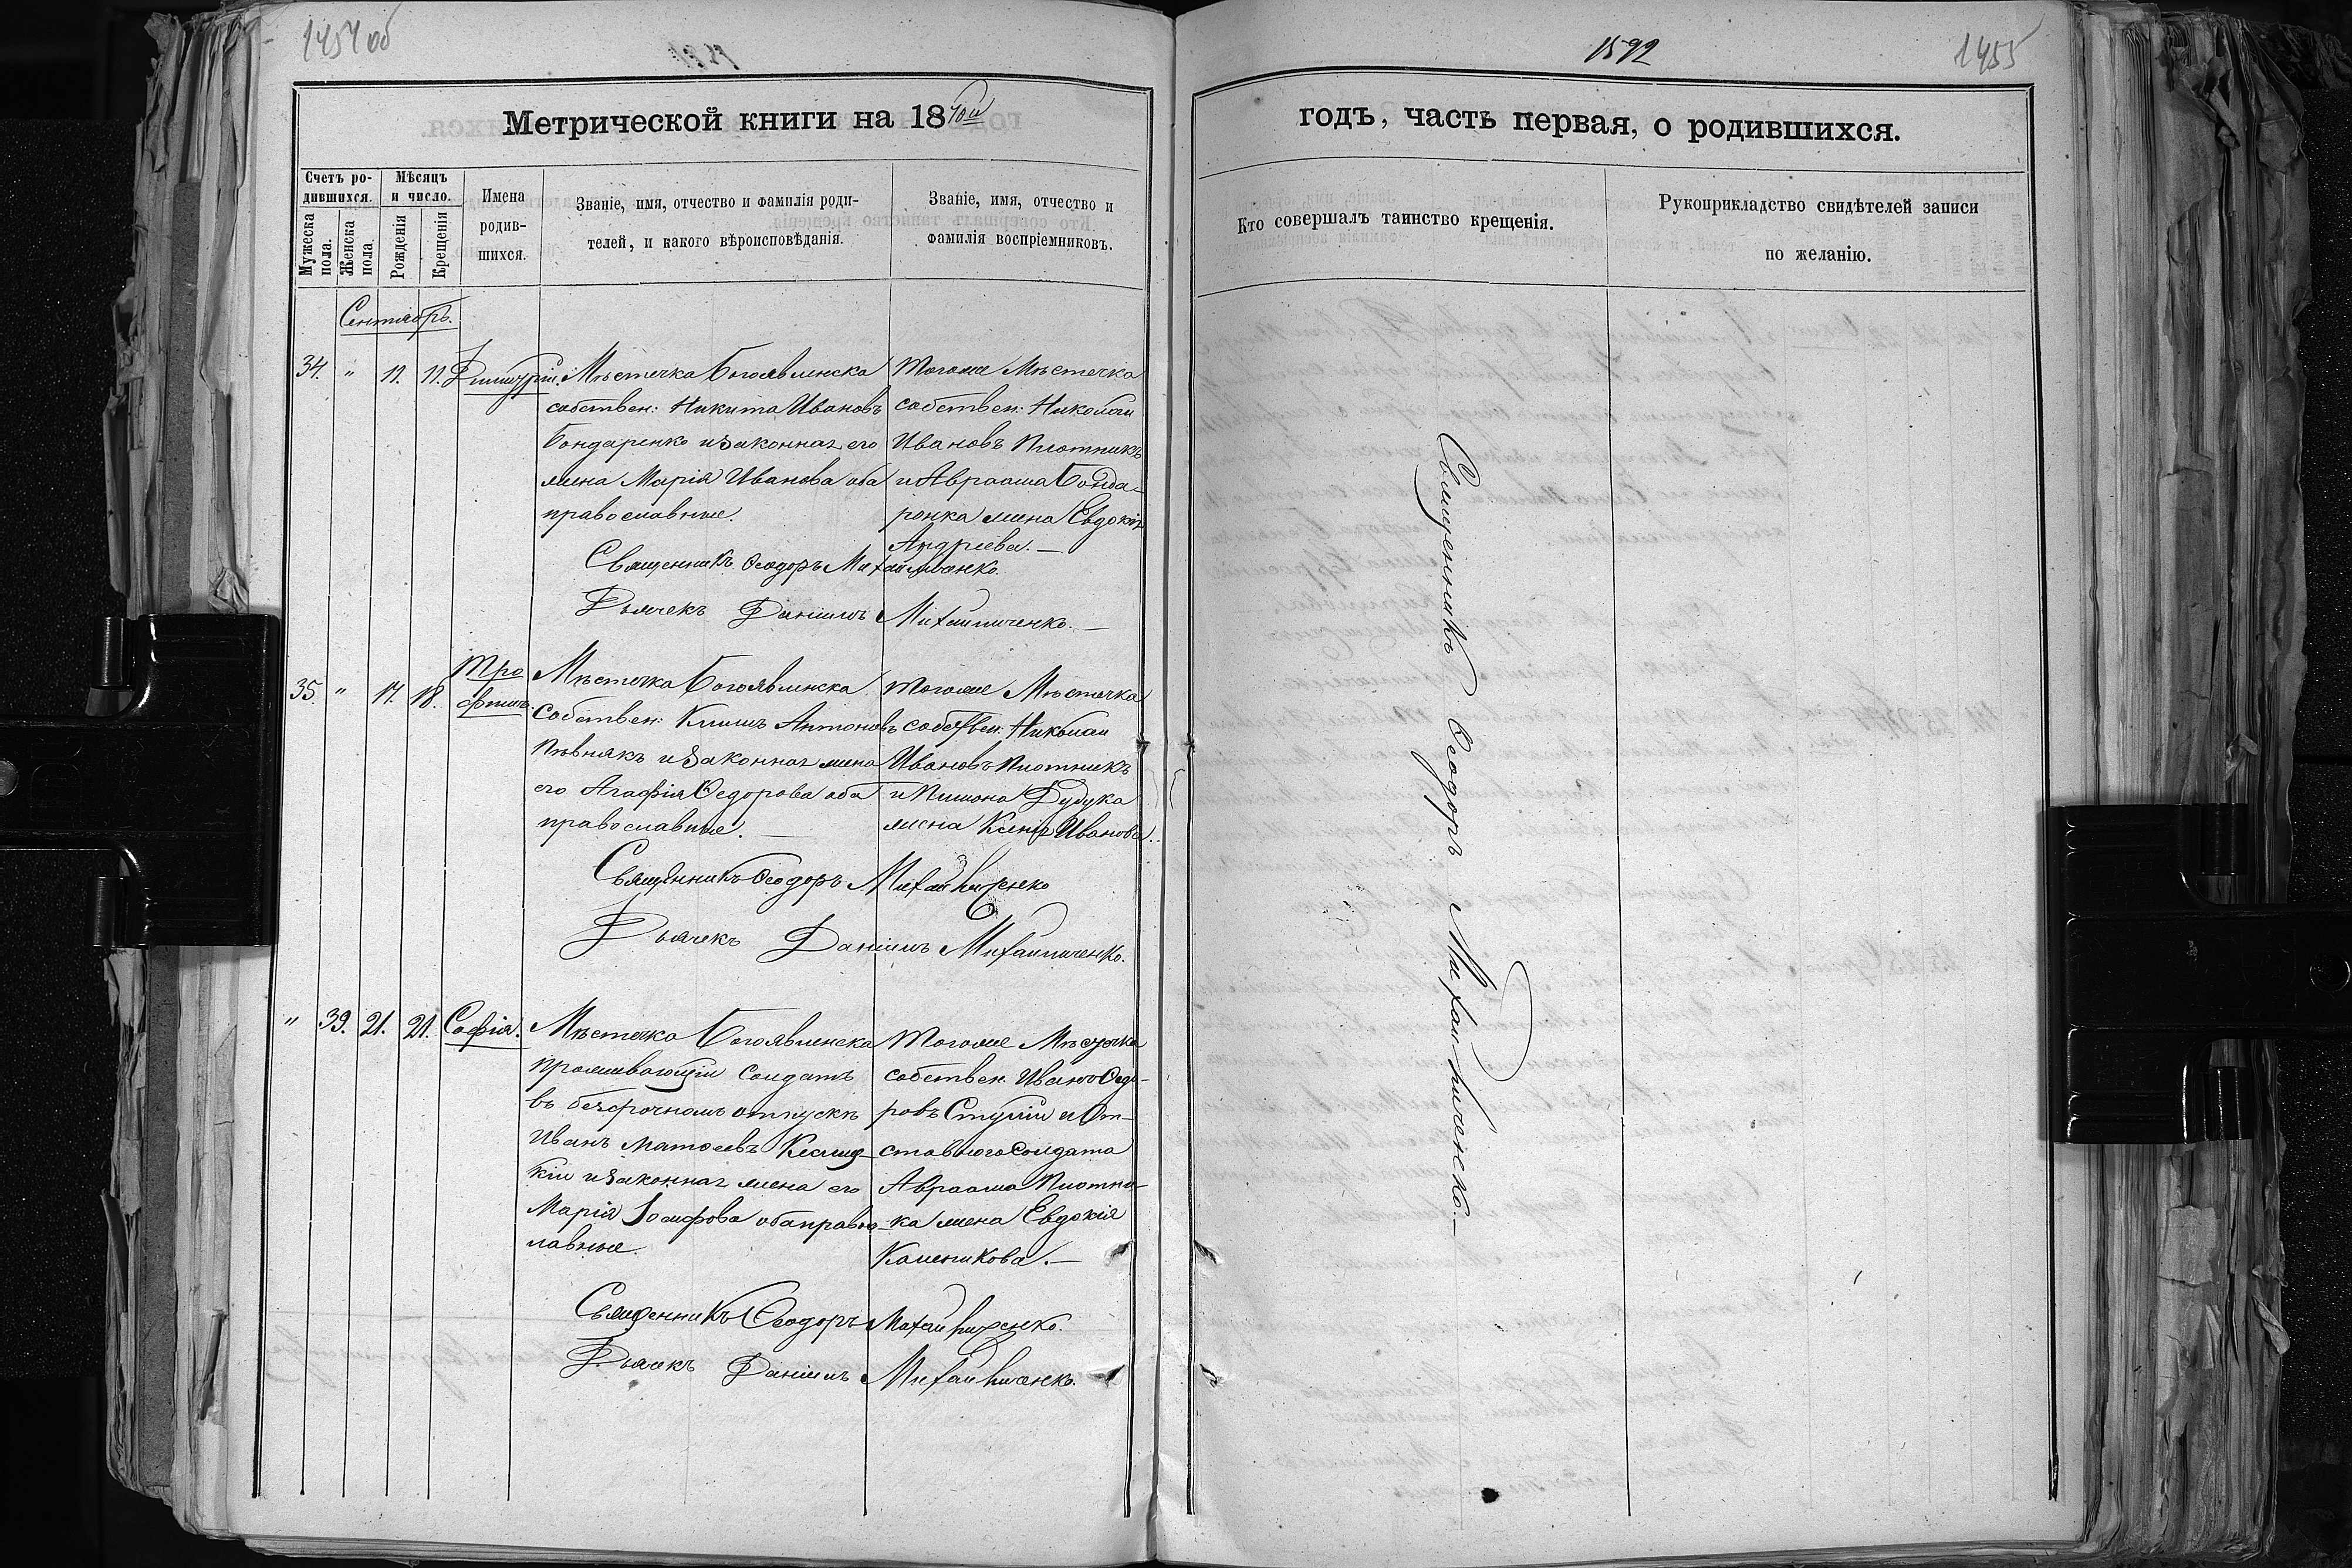 1454 об
1592
1455
Метрической книги на 1870й
годъ, часть первая, о родившихся.
Счетъ родившихся.
Мужеска пола.
Женска пола.
Мѣсяцъ и число.
Рожденія
Крещенія
Имена родившихся.
Званіе, имя, отчество и фамилія родителей, и какого вѣроисповѣданія.
Званіе, имя, отчество и фамилія воспріемниковъ.
Кто совершалъ таинство крещенія.
Рукоприкладство свидѣтелей записи
по желанію.
Сентябрь.
34. " 11. 11. Димитрій.
Мѣстечка Богоявленска
собствен: Никита Ивановъ
Бондаренко и законная его
жена Марія Иванова оба
православные.
Тогоже Мѣстечка
собствен: Николай
Ивановъ Плотникъ
и Авраама Бонда-
ренка жена Евдокія
Андреева.—
Священникъ Ѳеодоръ Михайличенко.
Дьячекъ Даніилъ Михайличенко.—
35. " 17. 18. Тро
фимъ.
Мѣстечка Богоявленска
собствен: Климъ Антоновъ
Пѣвнякъ и законная жена
его Агафія Ѳедорова оба
православные.—
Тогоже Мѣстечка
собствен: Николай
Ивановъ Плотникъ
и Пимона Дудука
жена Ксенія Иванова.
Священникъ Ѳеодоръ Михайличенко
Дьячекъ Даніилъ Михайличенко.
" 39. 21. 21. Софія.
Мѣстечка Богоявленска
проживающій солдатъ
въ безсрочномъ отпускѣ
Иванъ Матѳеевъ
кій и законная жена его
Марія Іосифова оба правос-
лавные.
Тогоже Мѣстечка
собствен. Иванъ Ѳедо-
ровъ и От-
ставного солдата
Авраама Плотни-
ка жена Евдокія
Каленикова.—
Священникъ Ѳеодоръ Михайличенко.
Дьячекъ Даніилъ Михайличенко.
Священникъ Ѳеодоръ Михайличенко.—